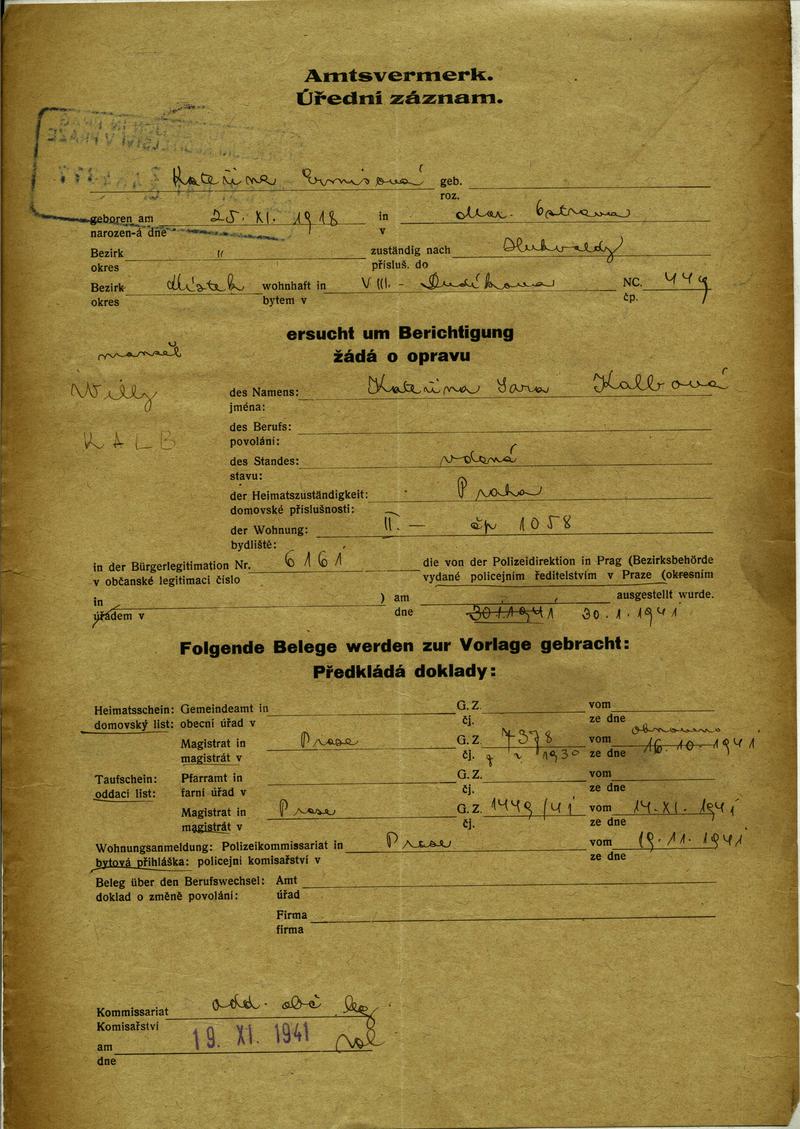 Amtsvermerk.
Úřední záznam.
Kateřina geb.
roz.
geboren am 25. XI. 1918 in Mor. Ostrava
narozen-á dne v
Bezirk " zuständig nach
okres přísluš. do
Bezirk Místek wohnhaft in VIII. - NC. 449
okres bytem v čp.
ersucht um Berichtigung
žádá o opravu
manžel
Willy
KALB
des Namens: Kateřina Jana Kalbová
jména:
des Berufs:
povolání:
des Standes: vdaná
stavu:
der Heimatszuständigkeit: Praha
domovské příslušnosti:
der Wohnung: II. — čp 1058
bydliště:
in der Bürgerlegitimation Nr. 6161 die von der Polizeidirektion in Prag (Bezirksbehörde
v občanské legitimaci číslo vydané policejním ředitelstvím v Praze (okresním
in ) am ausgestellt wurde.
úřadem v dne 30.1.1941 30.1.1941
Folgende Belege werden zur Vorlage gebracht:
Předkládá doklady:
Heimatsschein: Gemeindeamt in G. Z. vom
domovský list: obecní úřad v čj. ze dne
Magistrat in Praze G. Z. 4378 vom 16.10.1941
magistrát v čj. 1930 ze dne
Taufschein: Pfarramt in G. Z. vom
oddací list: farní úřad v čj. ze dne
Magistrat in Praze G. Z. 1449/41 vom 14.XI.1941
magistrát v čj. ze dne
Wohnungsanmeldung: Polizeikommissariat in Praze vom 19.11.1941
bytová přihláška: policejní komisařství v ze dne
Beleg über den Berufswechsel: Amt
doklad o změně povolání: úřad
Firma
firma
Kommissariat
Komisařství
am 19. XI. 1941
dne